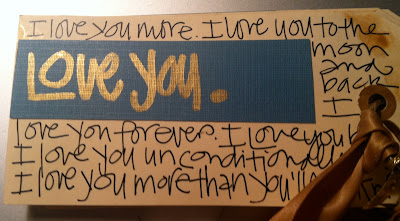 I love you more. I love you to the
moon
and
back.
I
Love you.
love you forever. I love you
I love you unconditionally
I love you more than you'll